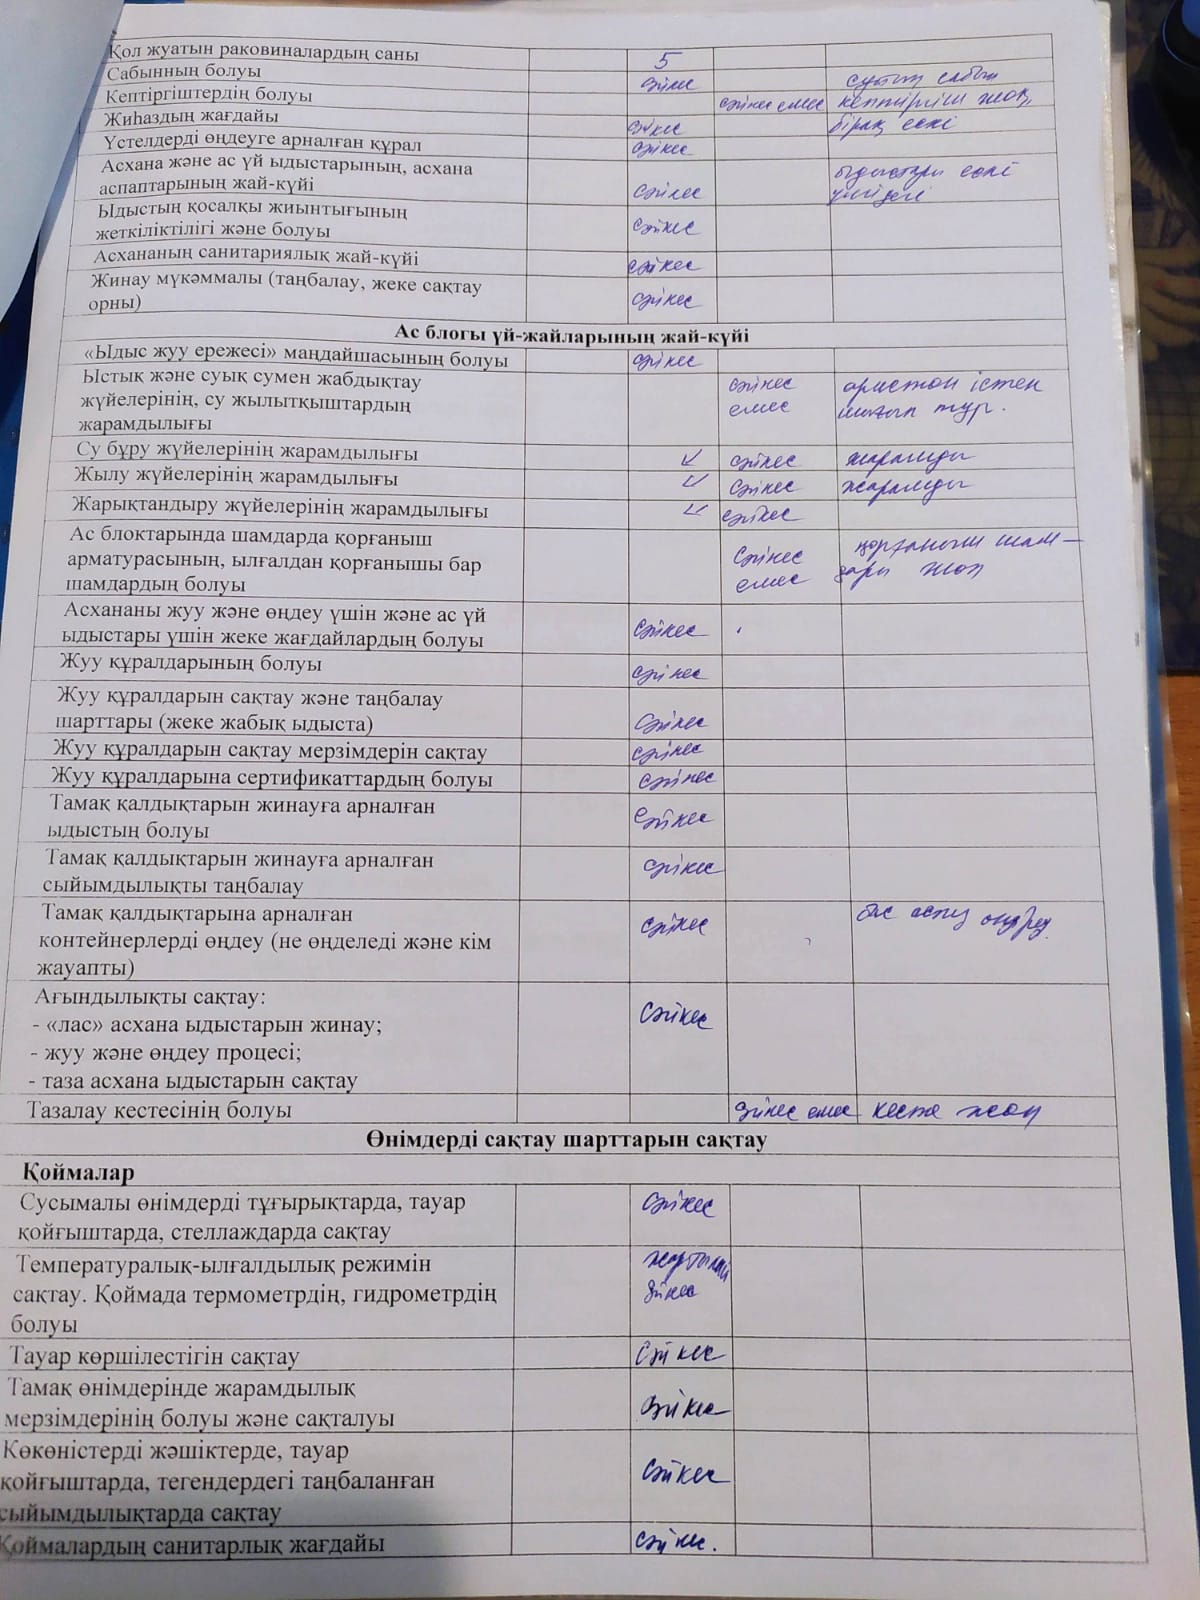 Қол жуатын раковиналардың саны 5
Сабынның болуы сәйкес сұйық сабын
Кептіргіштердің болуы сәйкес емес кептіргіш жоқ,
Жиһаздың жағдайы сәйкес бірақ ескі
Үстелдерді өңдеуге арналған құрал сәйкес
Асхана және ас үй ыдыстарының, асхана ыдыстары ескі
аспаптарының жай-күйі сәйкес
Ыдыстың қосалқы жиынтығының
жеткіліктілігі және болуы сәйкес
Асхананың санитариялық жай-күйі сәйкес
Жинау мүкәммалы (таңбалау, жеке сақтау
орны) сәйкес
Ас блогы үй-жайларының жай-күйі
«Ыдыс жуу ережесі» маңдайшасының болуы сәйкес
Ыстық және суық сумен жабдықтау сәйкес аристон істен
жүйелерінің, су жылытқыштардың емес шығып тұр.
жарамдылығы
Су бұру жүйелерінің жарамдылығы ✓ сәйкес жарамды
Жылу жүйелерінің жарамдылығы ✓ сәйкес жарамды
Жарықтандыру жүйелерінің жарамдылығы ✓ сәйкес
Ас блоктарында шамдарда қорғаныш қорғаныш шам-
арматурасының, ылғалдан қорғанышы бар сәйкес дары жоқ
шамдардың болуы емес
Асхананы жуу және өңдеу үшін және ас үй
ыдыстары үшін жеке жағдайлардың болуы сәйкес
Жуу құралдарының болуы сәйкес
Жуу құралдарын сақтау және таңбалау
шарттары (жеке жабық ыдыста) сәйкес
Жуу құралдарын сақтау мерзімдерін сақтау сәйкес
Жуу құралдарына сертификаттардың болуы сәйкес
Тамақ қалдықтарын жинауға арналған сәйкес
ыдыстың болуы
Тамақ қалдықтарын жинауға арналған сәйкес
сыйымдылықты таңбалау
Тамақ қалдықтарына арналған сәйкес бас аспаз
контейнерлерді өңдеу (не өңделеді және кім
жауапты)
Ағындылықты сақтау: сәйкес
- «лас» асхана ыдыстарын жинау;
- жуу және өңдеу процесі;
- таза асхана ыдыстарын сақтау
Тазалау кестесінің болуы сәйкес емес кесте жоқ
Өнімдерді сақтау шарттарын сақтау
Қоймалар
Сусымалы өнімдерді тұғырықтарда, тауар сәйкес
қойғыштарда, стеллаждарда сақтау
Температуралық-ылғалдылық режимін жартылай
сақтау. Қоймада термометрдің, гидрометрдің сәйкес
болуы
Тауар көршілестігін сақтау сәйкес
Тамақ өнімдерінде жарамдылық сәйкес
мерзімдерінің болуы және сақталуы
Көкөністерді жәшіктерде, тауар
қойғыштарда, тегендердегі таңбаланған сәйкес
сыйымдылықтарда сақтау
Қоймалардың санитарлық жағдайы сәйкес.